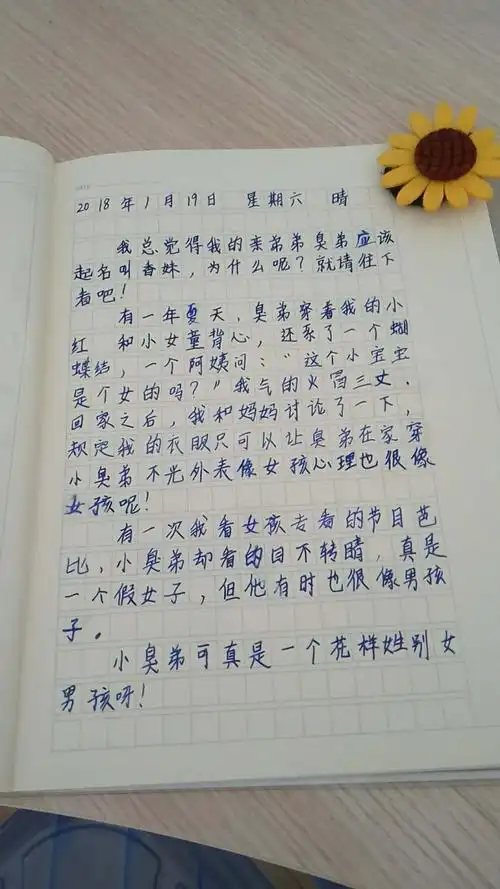 2018年1月19日 星期六 晴
我总觉得我的亲弟弟臭弟应该
起名叫香妹，为什么呢？就请往下
看吧！
有一年夏天，臭弟穿着我的小
红 和小女童背心，还系了一个蝴
蝶结，一个阿姨问：“这个小宝宝
是个女的吗？”我气的火冒三丈．
回家之后，我和妈妈讨论了一下，
规定我的衣服只可以让臭弟在家穿
小臭弟不光外表像女孩心理也很像
女孩呢！
有一次我看女孩专看的节目芭
比，小臭弟却看的目不转睛，真是
一个假女子，但他有时也很像男孩
子。
小臭弟可真是一个花样姓别女
男孩呀！